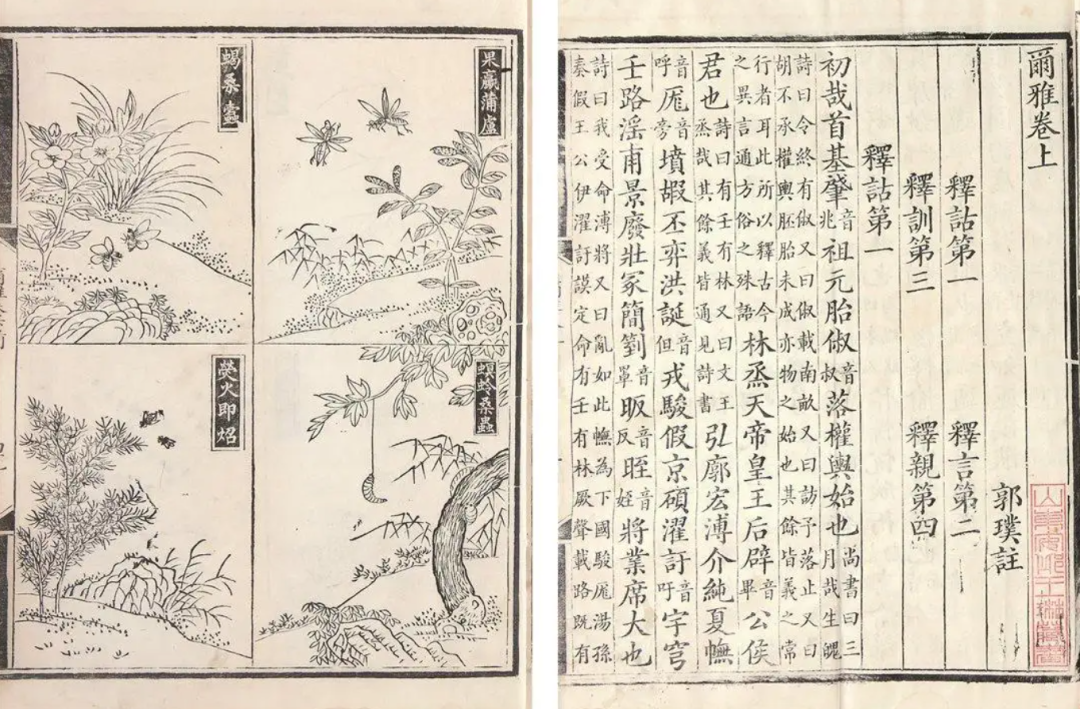 爾雅卷上
郭璞註
釋詁第一　釋言第二
釋訓第三　釋親第四
釋詁第一
初哉首基肇音兆祖元胎俶音叔落權輿始也尚書曰三月哉生魄
詩曰令終有俶又曰俶載南畝又曰訪予落止又曰胡不承權輿胚胎未成亦物之始也其餘皆義之常
行者耳此所以釋古今之異言通方俗之殊語林烝天帝皇王后辟音畢公侯
君也詩曰有壬有林又曰文王烝哉其餘義皆通見詩書弘廓宏溥介純夏幠
音呼厖音旁墳嘏丕弈洪誕音但戎駿假京碩濯訏音吁宇穹
壬路淫甫景廢壯冢簡箌音罩昄音反晊音姪將業席大也
詩曰我受命溥將又曰亂如此幠為下國駿厖湯孫奏假王公伊濯訏謨定命有壬有林厥聲載路既有
果蠃蒲盧
螟蛉桑蟲
蝎桑蠹
熒火即炤